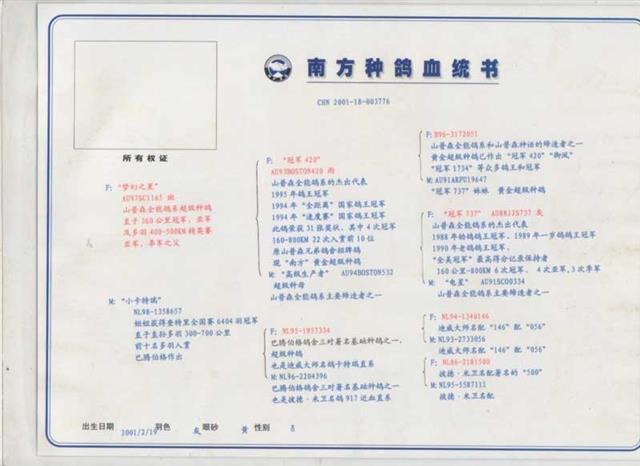 南方种鸽血统书
CHN 2001-18-003776
所有权证
F: "梦幻之星"
AU97SCI165 斑
山普森全能鸽系超级种鸽
直子360公里冠军、亚军
及多羽400-500KM精英赛
亚军、季军之父
M: "小卡特瑞"
NL98-1358657
姐姐获得查特里全国赛6404羽冠军
直子直孙多羽300-700公里
前十名多羽入赏
巴腾伯格作出
F: "冠军420"
AU93BOSTON420 雨
山普森全能鸽系的杰出代表
1995年鸽王冠军
1994年"全距离"国家鸽王冠军
1994年"速度赛"国家鸽王冠军
此鸽荣获31张奖状，其中4次冠军
160-800KM 22次入赏前10位
原山普森兄弟鸽舍招牌鸽
现"南方"黄金超级种鸽
M: "高级生产者" AU94BOSTON532
超级种母
山普森全能鸽系主要缔造者之一
F: NL95-1957334
巴腾伯格鸽舍三对著名基础种鸽之一，
超级种鸽
也是迪威大师名鸽卡特瑞直系
M: NL96-2204396
巴腾伯格鸽舍三对著名基础种鸽之一
也是彼德·米卫名鸽917近血直系
F: B96-3172051
山普森全能鸽系和山普森神话的缔造者之一
黄金超级种鸽已作出"冠军420""御风"
"冠军1734"等众多鸽王和冠军
M: AU91ARPU19647
"冠军737"妹妹 黄金超级种鸽
F: "冠军737" AU88JJS737 灰
山普森全能鸽系的杰出代表
1988年幼鸽鸽王冠军、1989年一岁鸽鸽王冠军
1990年老鸽鸽王冠军、
"全美冠军"最高得分记录保持者
160公里-800KM 6次冠军、4次亚军、3次季军
M: "电星" AU91SCO0334
山普森全能鸽系主要缔造者之一
F: NL94-1340146
迪威大师名配"146"配"056"
M: NL93-2733056
迪威大师名配"146"配"056"
F: NL86-2181500
彼德·米卫名配著名的"500"
M: NL95-5587111
彼德·米卫名配
出生日期 2001/2/19 羽色 灰 眼砂 黄 性别 ♁